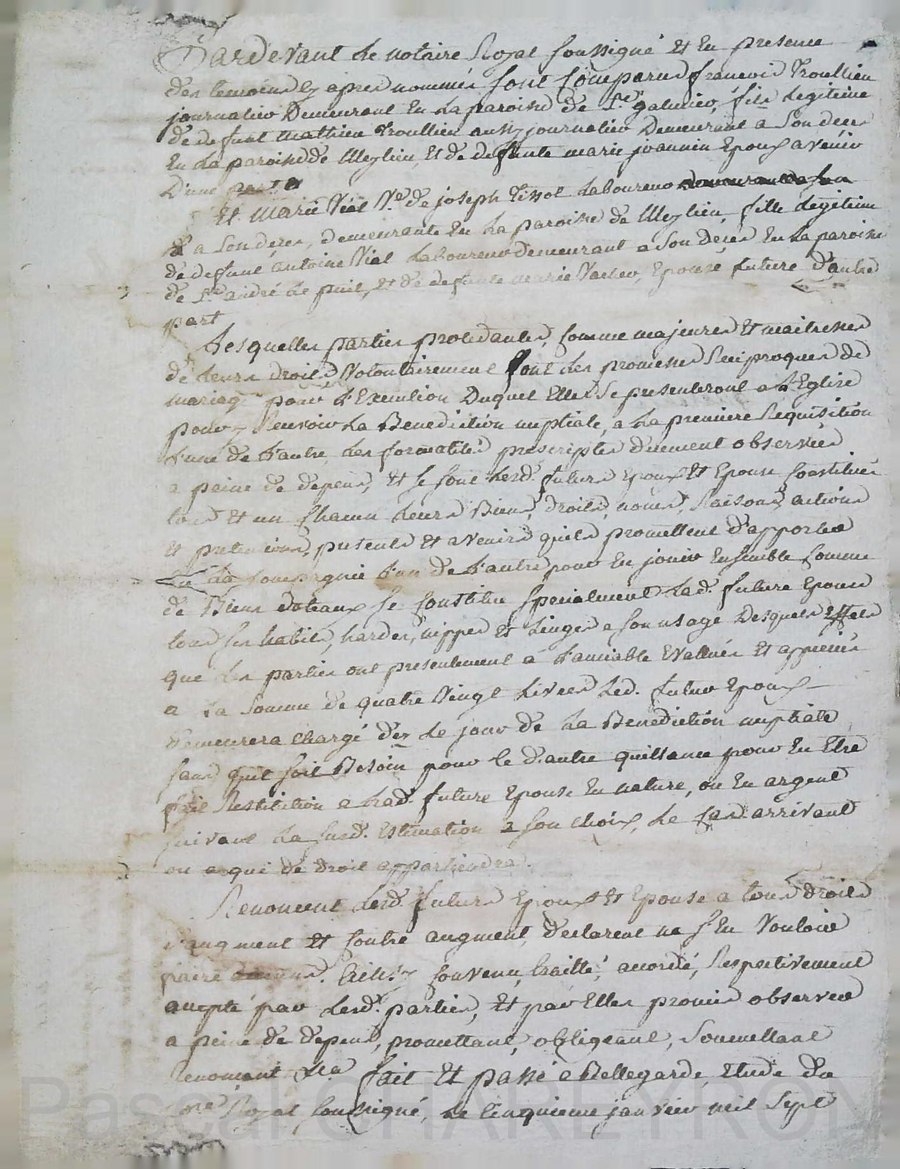 Pardevant Le notaire Royal soussigné Et En presence
des temoins cy apres nommés sont Comparus francois Troullieu
journalier Demeurant En La paroisse de St galmier, fils Legitime
de defunt mathieu Troullieu aussy journalier Demeurant a Son deces
En La paroisse de Meylieu, Et de defunte marie joannin Epoux avenir
D'une part
Et Marie Vial Ve de joseph Tissot Laboureur
a son deces, demeurante En La paroisse de Meylieu, fille Legitime
de defunt Antoine Vial Laboureur demeurant a Son Deces En La paroisse
de St andré Le puit, Et de defunte Marie Epouse future d'autre
part
Lesquelles parties procedantes, Comme majeures Et maitresses
de Leurs droits Volontairement font Les promesses Reciproques de
mariage pour L'Execution Duquel Elles Se presenteront a L'Eglise
pour y Recevoir La Benediction nuptiale, a La premiere Requisition
L'une de L'autre, Les formalités prescriptes düement observées
a peine de depens, Et Se sont Lesd. futurs Epoux Et Epouse Constitués
tous Et un Chacun Leurs Biens, droits, noms, Raisons, actions
Et pretentions, presents Et avenirs qu'ils promettent d'apporter
En La Compagnie L'un de L'autre pour En jouir Ensemble Comme
de Biens dotaux Se Constitue Specialement Lad. future Epouse
tous Ses habits, hardes, nippes Et Linges a Son usage Desquels Effets
que Les parties ont presentement a L'amiable Evalués Et appreciés
a La Somme de quatre Vingt Livres Led. futur Epoux
Demeurera Chargé dès Le jour de La Benediction nuptiale
sans qu'il soit Besoin pour Ce d'autre quittance pour En Etre
fait Restitution a Lad. future Epouse En nature, ou En argent
suivant La Susd. Estimation a Son Choix, Le Cas arrivant
ou a qui de droit appartiendra.
Renoncent Lesd. futurs Epoux Et Epouse a tous droits
d'augment Et Contre augment, declarent ne S'En Vouloir
faire aucuns. Ainsy Convenu, traitté, accordé, Respectivement
accepté par Lesd. parties, Et par Elles promis observer
a peine de depens, promettant, obligeant, Soumettant
Renoncant &a fait Et passé a Bellegarde, Etude du
nore Royal Soussigné, Le Cinquieme janvier mil Sept
Pascal CHAREYRON